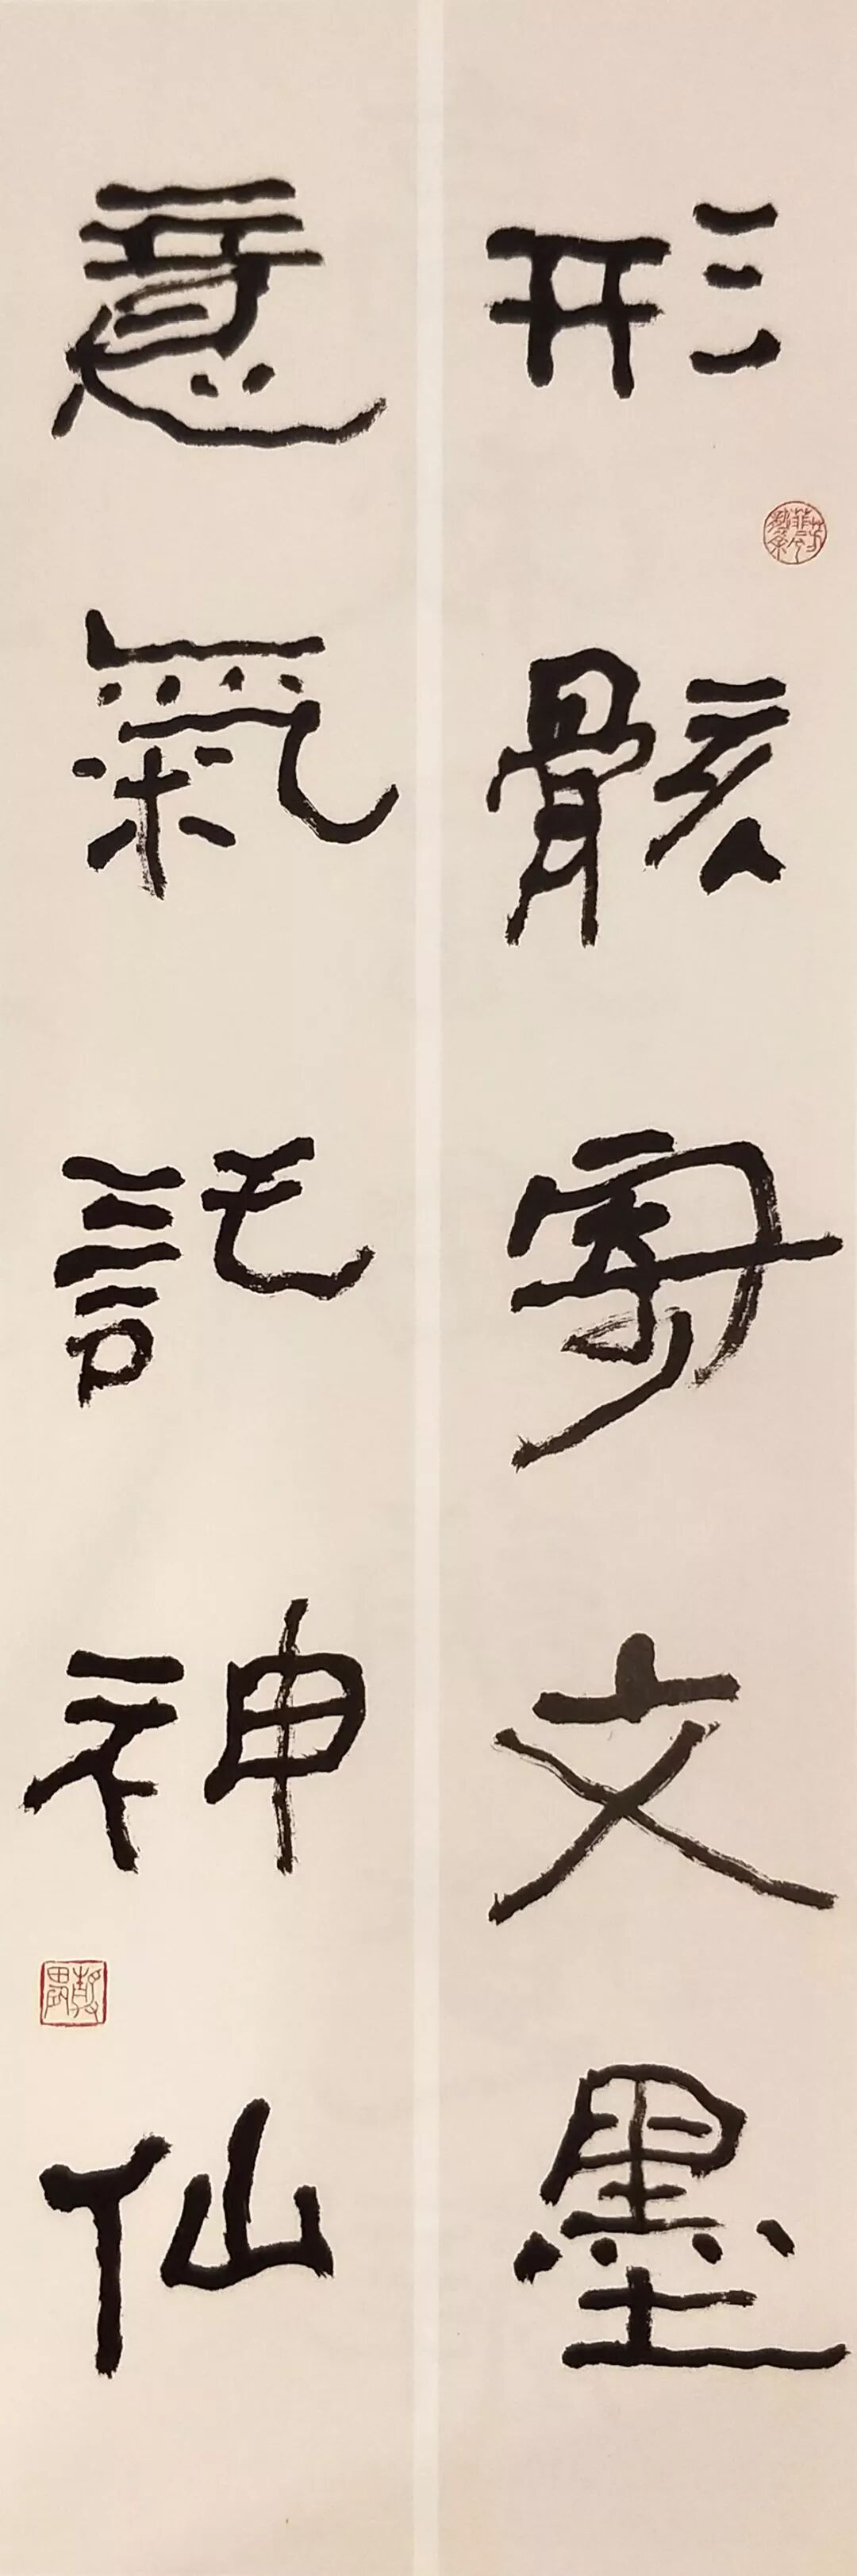 形骸寄文墨
意氣託神仙